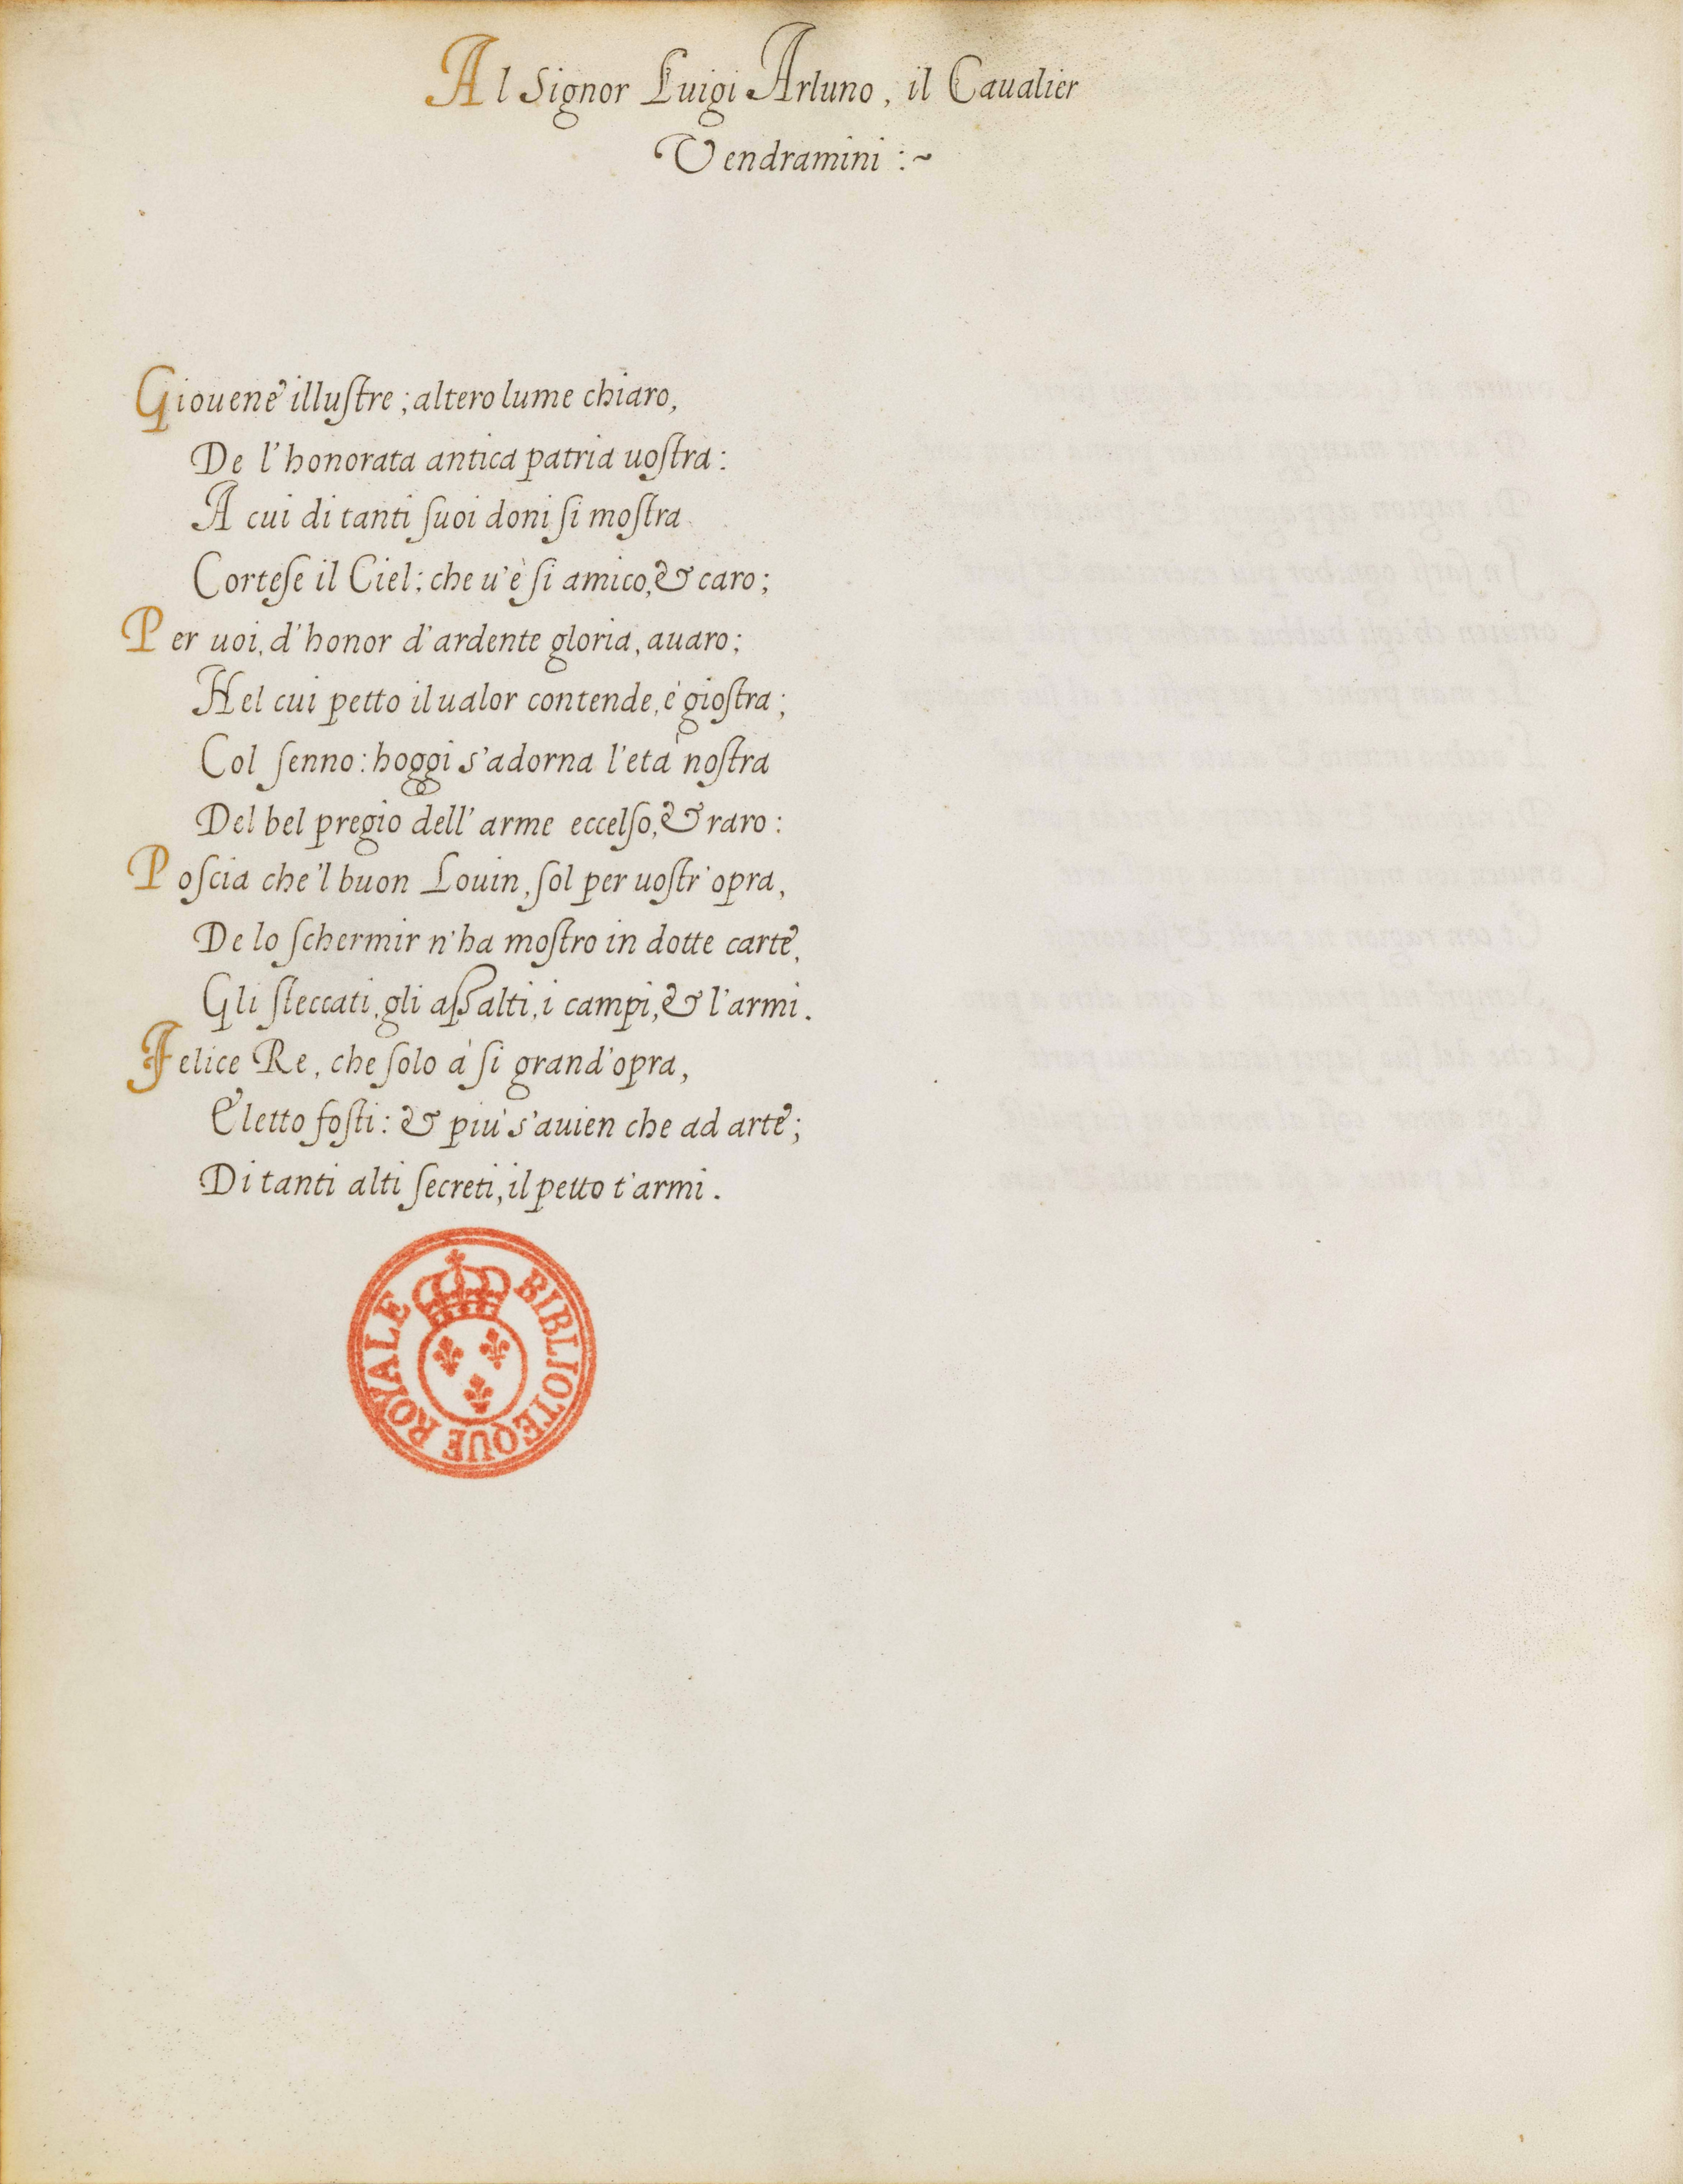 Al Signor Luigi Arluno, il Caualier
Vendramini :~
Giouene illuſtre; altero lume chiaro,
De l'honorata antica patria uoſtra:
A cui di tanti ſuoi doni ſi moſtra
Corteſe il Ciel; che u'è ſi amico, & caro;
Per uoi, d'honor d'ardente gloria, auaro;
Nel cui petto il ualor contende, è gioſtra;
Col ſenno: hoggi s'adorna l'età noſtra
Del bel pregio dell'arme eccelſo, & raro:
Poſcia che'l buon Louin, ſol per uoſtr'opra,
De lo ſchermir n'ha moſtro in dotte carte,
Gli ſteccati, gli aſſalti, i campi, & l'armi.
Felice Re, che ſolo à ſi grand'opra,
Eletto foſti: & più s'auien che ad arte;
Di tanti alti ſecreti, il petto t'armi.
BIBLIOTEQUE ROYALE